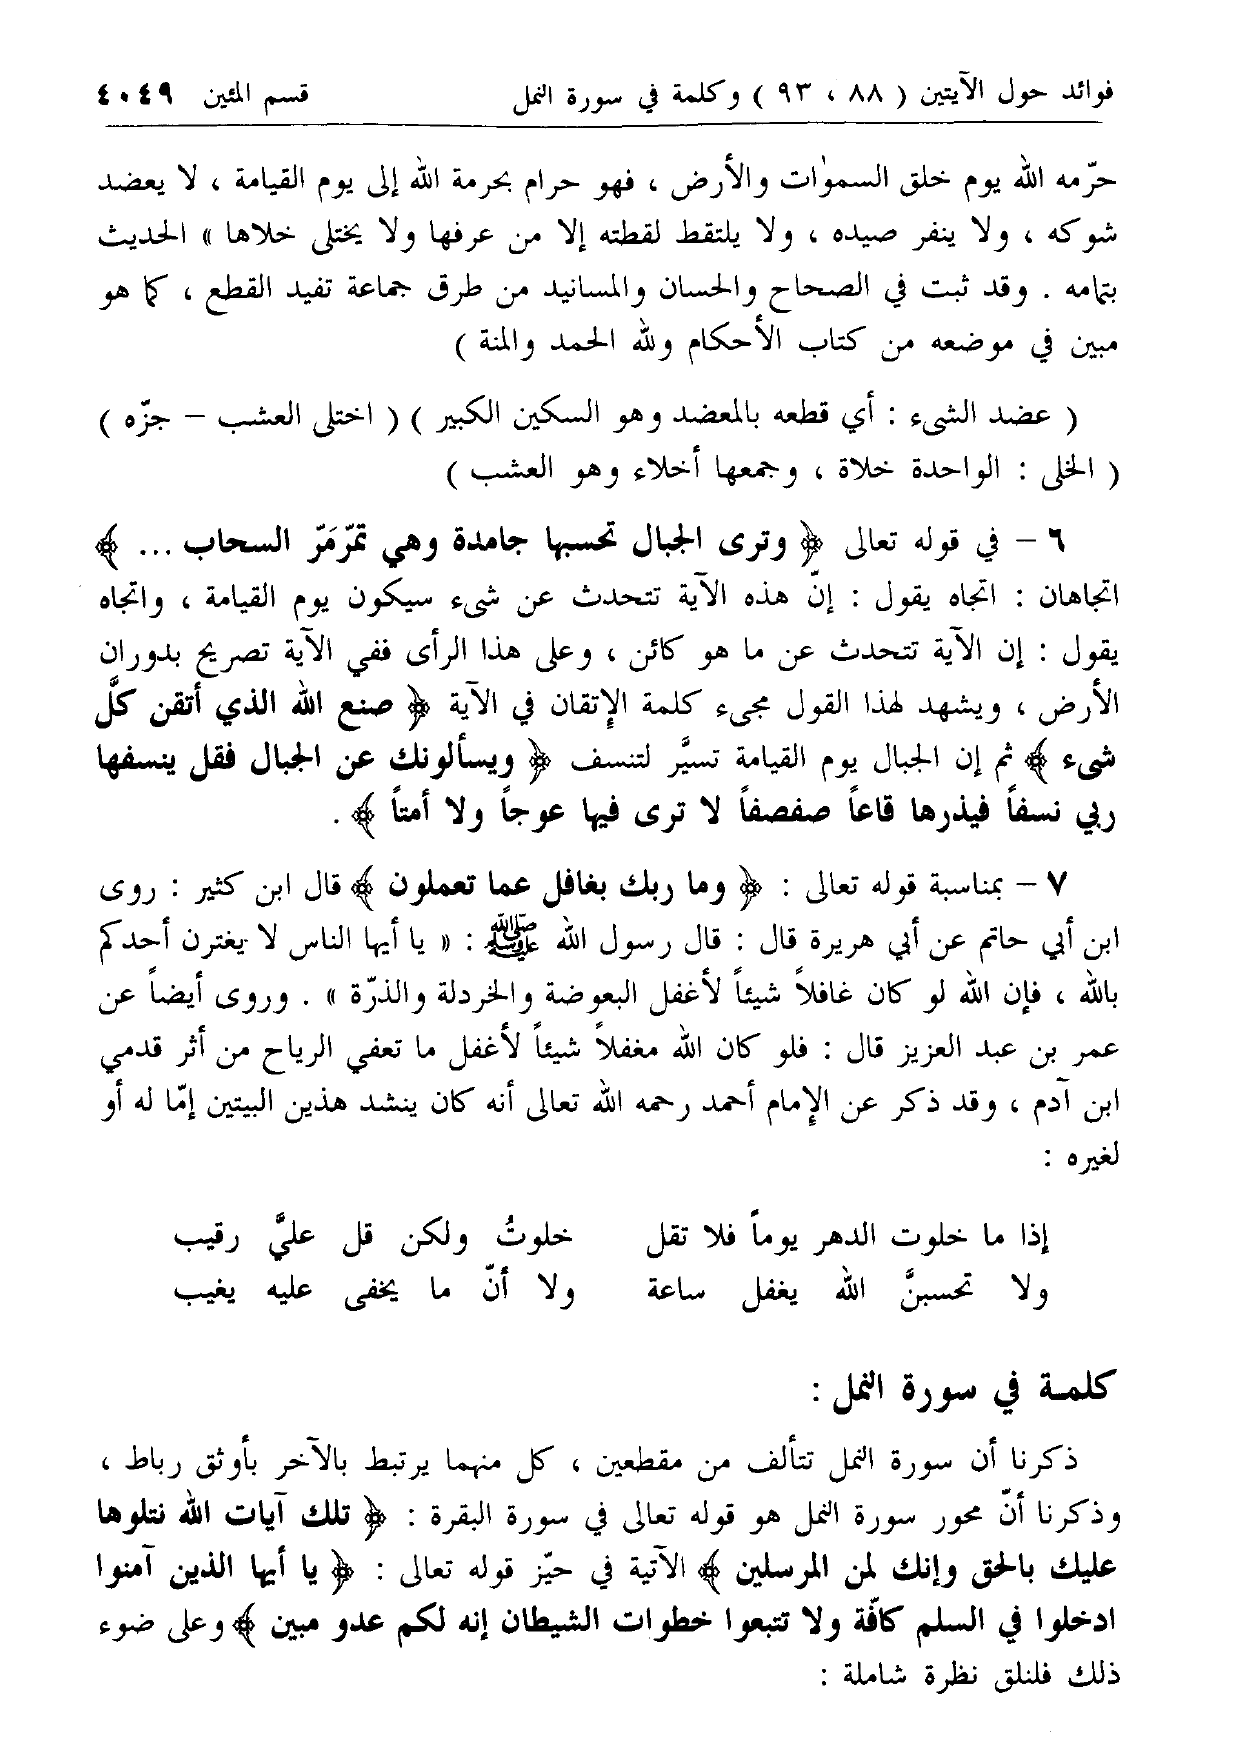 فوائد حول الآيتين ( ٨٨ ، ٩٣ ) وكلمة في سورة النمل قسم المئين ٤٠٤٩
حرّمه الله يوم خلق السموات والأرض ، فهو حرام بحرمة الله إلى يوم القيامة ، لا يعضد
شوكه ، ولا ينفر صيده ، ولا يلتقط لقطته إلا من عرفها ولا يختلى خلاها » الحديث
بتمامه . وقد ثبت في الصحاح والحسان والمسانيد من طرق جماعة تفيد القطع ، كما هو
مبين في موضعه من كتاب الأحكام ولله الحمد والمنة )
( عضد الشىء : أي قطعه بالمعضد وهو السكين الكبير ) ( اختلى العشب – جزّه )
( الخلى : الواحدة خلاة ، وجمعها أخلاء وهو العشب )
٦ – في قوله تعالى ﴿ وترى الجبال تحسبها جامدة وهي تمرّ مَرّ السحاب ... ﴾
اتجاهان : اتجاه يقول : إنّ هذه الآية تتحدث عن شىء سيكون يوم القيامة ، واتجاه
يقول : إن الآية تتحدث عن ما هو كائن ، وعلى هذا الرأى ففي الآية تصريح بدوران
الأرض ، ويشهد لهذا القول مجىء كلمة الإتقان في الآية ﴿ صنع الله الذي أتقن كلَّ
شىء ﴾ ثم إن الجبال يوم القيامة تسيَّر لتنسف ﴿ ويسألونك عن الجبال فقل ينسفها
ربي نسفاً فيذرها قاعاً صفصفاً لا ترى فيها عوجاً ولا أمتاً ﴾ .
٧ – بمناسبة قوله تعالى : ﴿ وما ربك بغافل عما تعملون ﴾ قال ابن كثير : روى
ابن أبي حاتم عن أبي هريرة قال : قال رسول الله ﷺ : « يا أيها الناس لا يغترن أحدكم
بالله ، فإن الله لو كان غافلاً شيئاً لأغفل البعوضة والخردلة والذرّة » . وروى أيضاً عن
عمر بن عبد العزيز قال : فلو كان الله مغفلاً شيئاً لأغفل ما تعفي الرياح من أثر قدمي
ابن آدم ، وقد ذكر عن الإمام أحمد رحمه الله تعالى أنه كان ينشد هذين البيتين إمّا له أو
لغيره :
إذا ما خلوت الدهر يوماً فلا تقل خلوتُ ولكن قل عليَّ رقيب
ولا تحسبنَّ الله يغفل ساعة ولا أنّ ما يخفى عليه يغيب
كلمة في سورة النمل :
ذكرنا أن سورة النمل تتألف من مقطعين ، كل منهما يرتبط بالآخر بأوثق رباط ،
وذكرنا أنّ محور سورة النمل هو قوله تعالى في سورة البقرة : ﴿ تلك آيات الله نتلوها
عليك بالحق وإنك لمن المرسلين ﴾ الآتية في حيّز قوله تعالى : ﴿ يا أيها الذين آمنوا
ادخلوا في السلم كافّة ولا تتبعوا خطوات الشيطان إنه لكم عدو مبين ﴾ وعلى ضوء
ذلك فلنلق نظرة شاملة :